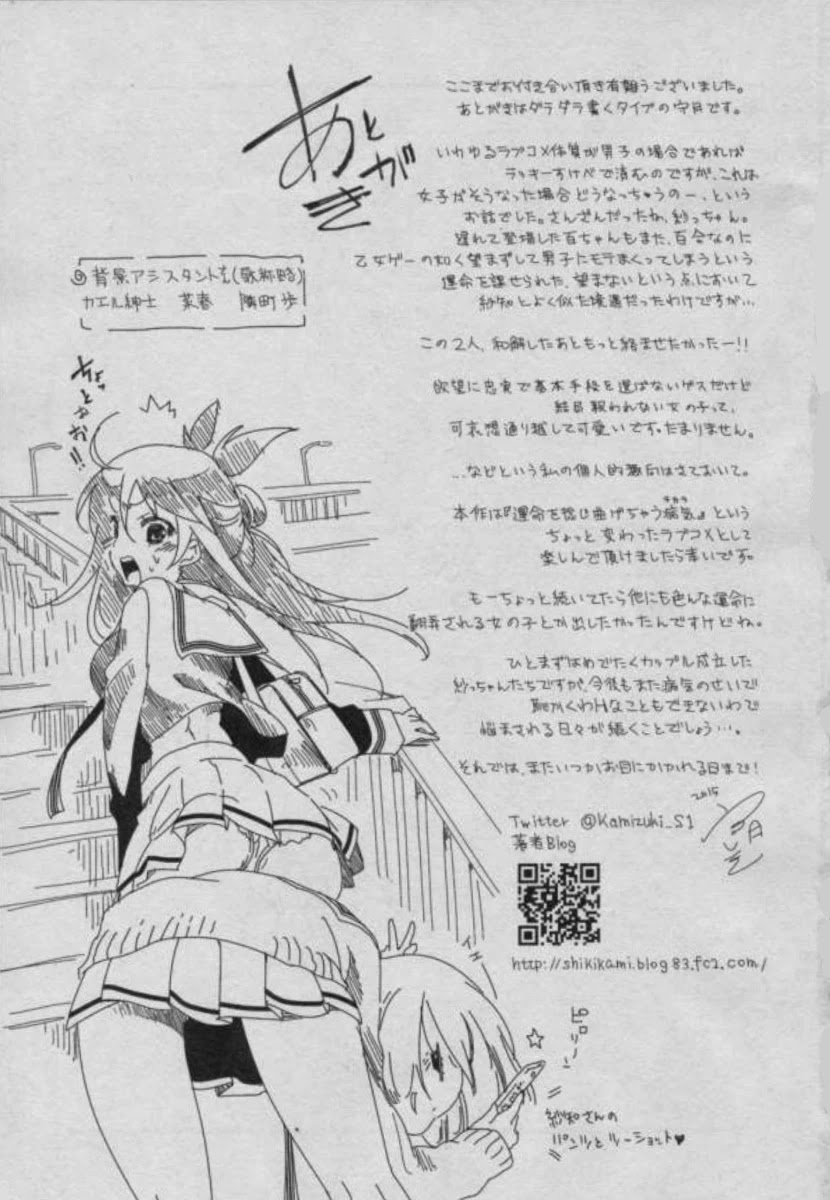 あとがき
ここまでお付き合い頂き有難うございました。
あとがきはダラダラ書くタイプの守月です。
いわゆるラブコメ体質が男子の場合であれば
ラッキーすけべで済むのですが、これは
女子がそうなった場合どうなっちゃうのー、という
お話でした。さんざんだったね、紗っちゃん。
遅れて登場した百ちゃんもまた、百合なのに
乙女ゲーの如く望まずして男子にモテまくってしまうという
運命を課せられた、望まないという点において
紗知とよく似た境遇だったわけですが…
この2人、和解したあともっと絡ませたかったー!!
欲望に忠実で基本手段を選ばないゲスだけど
結局報われない女の子って、
可哀想通り越して可愛いです。たまりません。
…などという私の個人的趣向はさておいて。
本作は『運命を捻じ曲げちゃう病気』という
ちょっと変わったラブコメとして
楽しんで頂けましたら幸いです。
もーちょっと続いてたら他にも色んな運命に
翻弄される女の子とか出したかったんですけどね。
ひとまずはめでたくカップル成立した
紗っちゃんたちですが、今後もまた病気のせいで
わHなこともできないわで
悩まされる日々が続くことでしょう…。
それでは、またいつかお目にかかれる日まで!
2015
Twitter @Kamizuki_S1
著者Blog
http://shikikami.blog83.fc2.com/
◎背景アシスタント様(敬称略)
カエル紳士 菜春 隣町歩
ちょっとかお!!
イエー
ピローン
☆
紗知さんの
パンツとツーショット♥